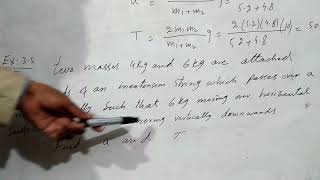 a = m₁+m₂ 5.2+4.8
T = 2m₁m₂ / m₁+m₂ g = 2(5.2)(4.8)(10) / 5.2+4.8 = 50
Ex: 3.5 Two masses 4kg and 6kg are attached
ds of an inextension string which passes over a
ally such that 6kg moving over horizontal
moving vertically downwards
Find a and T